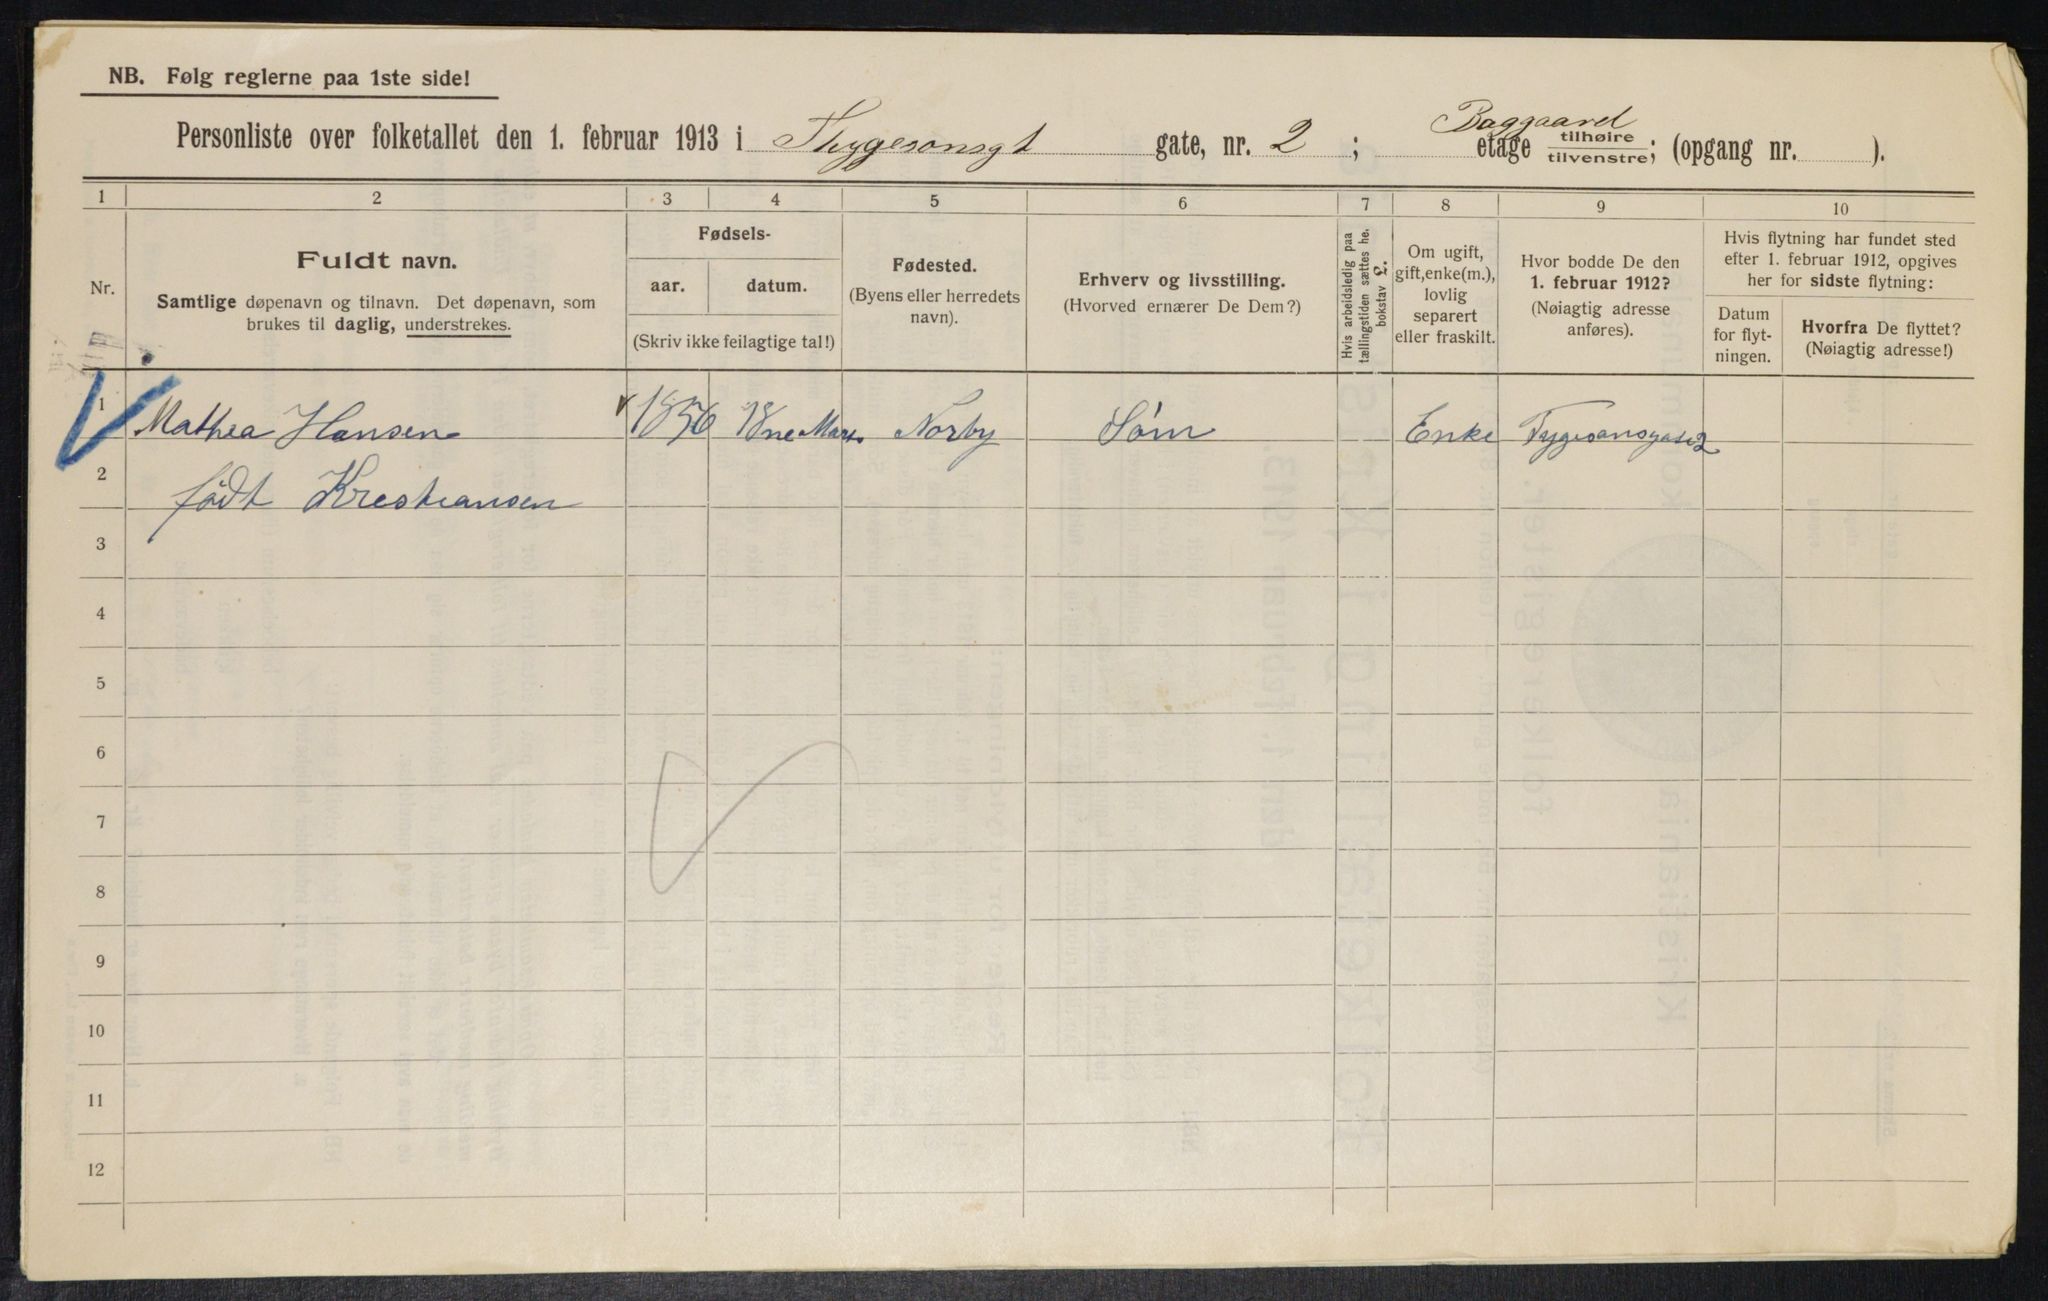 NB. Følg reglerne paa 1ste side!
Personliste over folketallet den 1. februar 1913 i Thygesonsgt gate, nr. 2; Baggaard etage tilhøire tilvenstre; (opgang nr. ).
1 2 3 4 5 6 7 8 9 10
Nr.
Fuldt navn.
Samtlige døpenavn og tilnavn. Det døpenavn, som
brukes til daglig, understrekes.
Fødsels-
aar. datum.
(Skriv ikke feilagtige tal!)
Fødested.
(Byens eller herredets
navn).
Erhverv og livsstilling.
(Hvorved ernærer De Dem?)
Hvis arbeidsledig paa
tællingstiden sættes he.
bokstav L.
Om ugift,
gift, enke(m.),
lovlig
separert
eller fraskilt.
Hvor bodde De den
1. februar 1912?
(Nøiagtig adresse
anføres).
Hvis flytning har fundet sted
efter 1. februar 1912, opgives
her for sidste flytning:
Datum
for flyt-
ningen.
Hvorfra De flyttet?
(Nøiagtig adresse!)
1 Mathea Hansen 1856 18ne Mars Norby Søm Enke Tygesonsgase 2
2 født Krestiansen
3
4
5
6
7
8
9
10
11
12